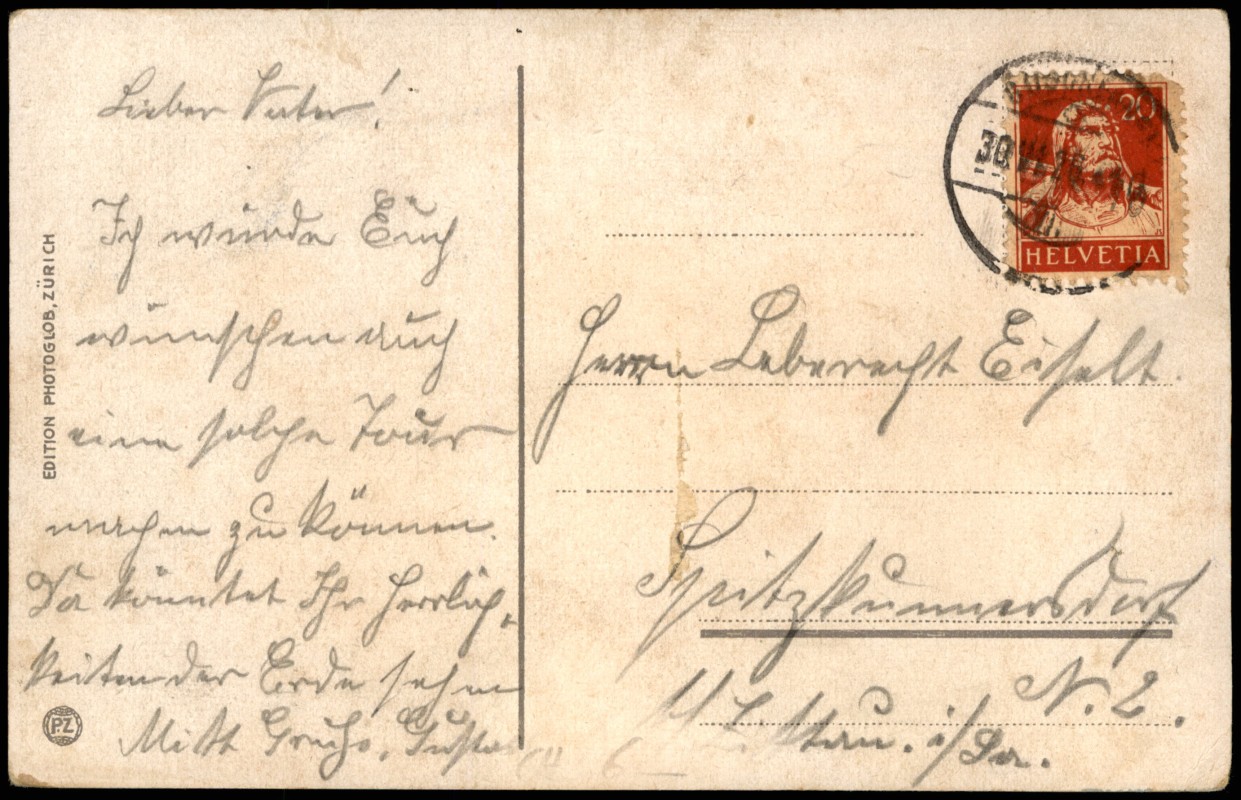 Lieber Vater!
Ich würde Euch
wünschen auch
eine solche Tour
machen zu können.
Da könntet Ihr Herrlich-
keiten der Erde sehn
Mitt Gruhs, Gustav
EDITION PHOTOGLOB, ZÜRICH
P.Z
20
HELVETIA
30.VII.
Herrn Leberecht Eifelt.
Spitzkunnersdorf
N. 2.
b/ Zittau. i/Sa.
6 —